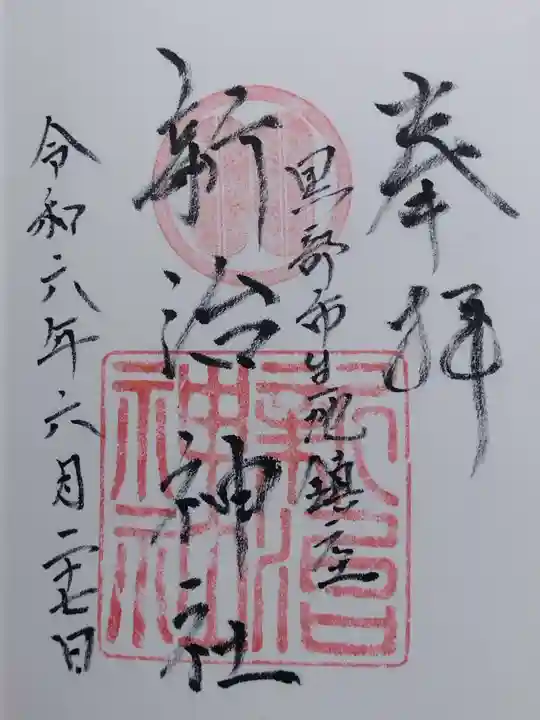 奉拝
黒部市生地鎮座
新治神社
令和六年六月二十七日
新治
神社